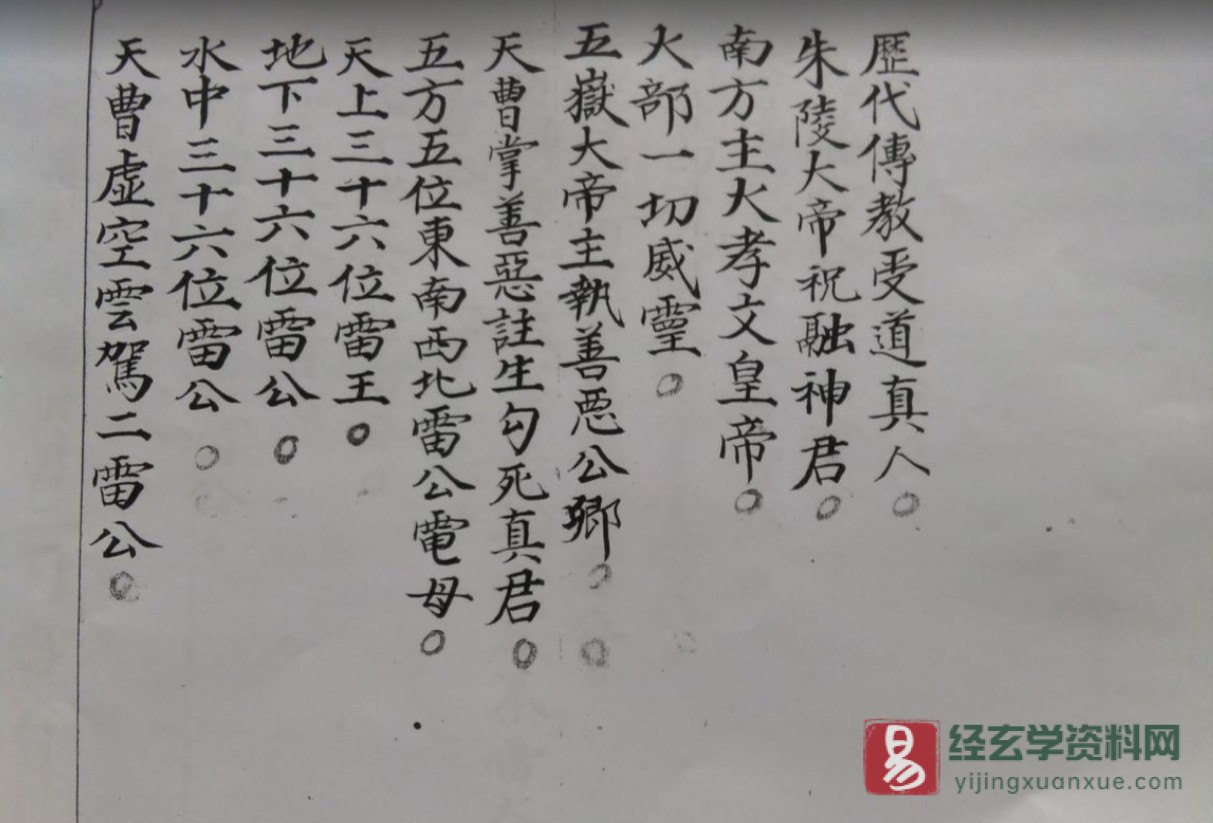 歷代傳教受道真人○
朱陵大帝祝融神君○
南方主火孝文皇帝○
火部一切威靈○
五嶽大帝主執善惡公卿○
天曹掌善惡註生勾死真君○
五方五位東南西北雷公電母○
天上三十六位雷王○
地下三十六位雷公○
水中三十六位雷公○
天曹虛空雲駕二雷公○
易
经玄学资料网
yijingxuanxue.com